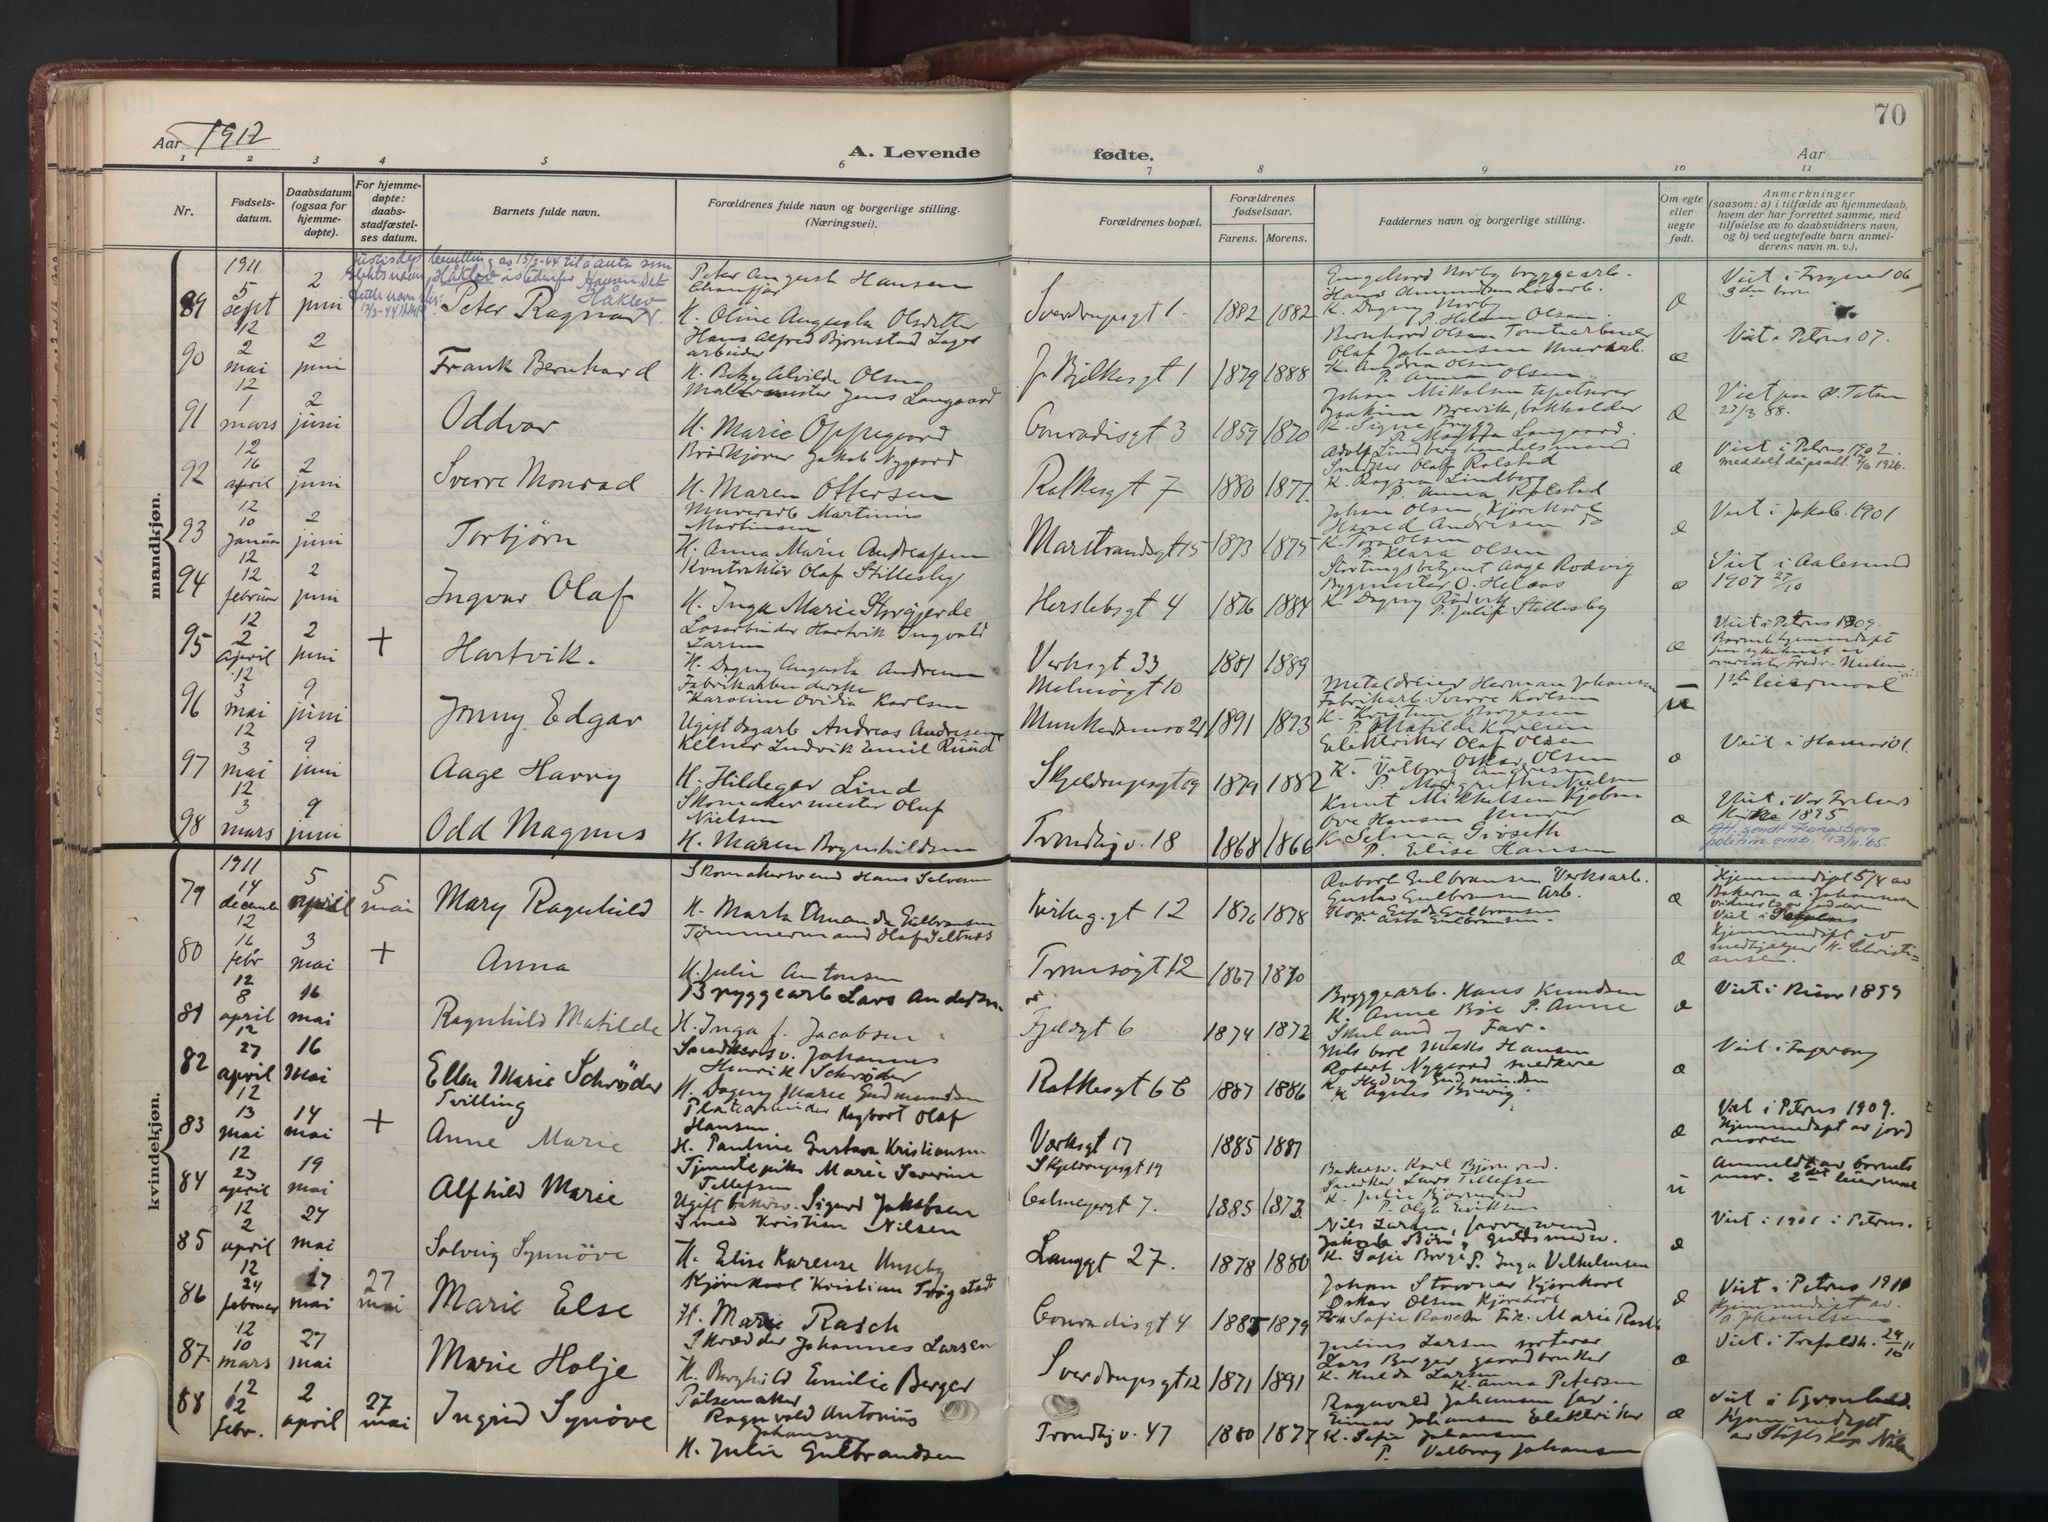 70
Aar 1912
A. Levende fødte.
Aar
1 2 3 4 5 6 7 8 9 10 11
Nr.
Fødsels-datum.
Daabsdatum (ogsaa for hjemme-døpte).
For hjemme-døpte: daabs-stadfæstel-ses datum.
Barnets fulde navn.
Forældrenes fulde navn og borgerlige stilling. (Næringsvei).
Forældrenes bopæl.
Forældrenes fødselsaar.
Farens. Morens.
Faddernes navn og borgerlige stilling.
Om egte eller uegte født.
Anmerkninger (saasom: a) i tilfælde av hjemmedaab, hvem der har forrettet samme, med tilføielse av to daabsvidners navn, og b) ved uegtefødte barn anmelderens navn m. v.).
mandkjøn.
89 1911 5 sept 2 juni Peter Ragnar Håklev
Peter August Hansen
K. Oline Augusta Olsdatter
Sverdrupsgt 1. 1882 1882
P. Helen Olsen
æ
3die barn
90 12 2 mai 2 juni Frank Bernhard
Hans Alfred Bjørnstad Lager arbeider
H. Betzy Alvilde Olsen
J. Bjelkesgt 1 1879 1888
Bernhard Olsen
Olaf Johansen Murarb.
P. Anna Olsen
æ
Viet i Petrus 07.
91 12 1 mars 2 juni Oddvar
Malermester Jens Langaard
H. Marie Oppegaard
Conradisgt 3 1859 1870
Johan Mikalsen tapetserer
Joakim Brevik, bokholder
K. Signe Brygg
æ
Viet paa Ø. Toten 27/3 88.
92 12 16 april 2 juni Sverre Monrad
Brødkjører Jakob Nygaard
H. Maren Ottersen
Ratkesgt 7 1880 1877
Adolf Lindberg handelsmand
Snedker Olaf Rolstad
K. Ragna Lindberg
P. Anna Rolstad
æ
Viet i Petrus 1902.
93 12 10 januar 2 juni Torbjørn
Murerarb Martinius Martinsen
H. Anna Marie Andreassen
Marstrandsgt 15 1873 1875
Johan Olsen, Kjørekarl
Harald Andresen do
K. Tora Olsen
P. Klara Olsen
æ
Viet i Jakob. 1901
94 12 12 februar 2 juni Ingvar Olaf
Kontraktør Olaf Stillesby
H. Inga Marie Storgjerde
Herslebsgt 4 1876 1884
Stortingsbetjent Aage Rodvig
Bygmester O. Helaas
K. Dagny Rödvik
P. Julie Stillesby
æ
Viet i Aalesund 1907 27/10
95 12 2 april 2 juni + Hartvik.
Losarbeider Hartvik Ingvald Larsen
H. Dagny Augusta Andresen
Verksgt 33 1881 1889
æ
Viet i Petrus 1909.
96 12 3 mai 9 juni Jonny Edgar
Fabrikarbeiderske Karoline Ovidia Karlsen
Ugift dagarb Andreas Andresen
Malmøgt 10
Munkedamsv 21 1891 1873
Metaldreier Herman Johansen
Fabrikarb. Sverre Karlsen
P. Matilde Karlsen
u
1ste leiermaal
97 12 3 mai 9 juni Aage Harry
Kelner Ludvik Emil Ruud
H. Hildegar Lind
Skjeldrupsgt 19 1879 1882
Elektriker Olaf Olsen
Oskar Olsen
K. Valborg Andresen
P. Margrethe Nielsen
æ
Viet i Hamar 01.
98 12 3 mars 9 juni Odd Magnus
Skomakermester Olaf Nielsen
H. Maren Brynhildsen
Trondhj.v. 18 1868 1866
Knut Mikkelsen Kjøbm
Ove Hansen Murer
K. Selma Grøseth
P. Elise Hansen
æ
Viet i Vor Frelsers Kirke 1895
Att. sendt Kongsberg 13/11.65.
kvindekjøn.
79 1911 14 december 5 april 5 mai Mary Ragnhild
Skomakersvend Hans Salvesen
H. Marta Amanda Gulbransen
Kirkeg.gt 12 1876 1878
Robert Gulbransen Verksarb.
Gustav Gulbransen Arb.
P. Asta Gulbransen.
æ
Hjemmedøpt 5/4 av
80 12 16 febr 3 mai + Anna
Tømmermand Olaf Seltnes
H. Julie Antonsen
Tromsøgt 12 1867 1870
æ
Hjemmedøpt av medhjelper K. Christiansen.
81 12 8 april 16 mai Ragnhild Matilde
Bryggearb Lars Andersen
H. Inga f. Jacobsen
Fjeldgt 6 1874 1872
Bryggearb. Hans Knudsen
K. Anne Bøe P. Anne
Skuland og Far.
æ
Viet i 1899
82 12 27 april 16 mai Ellen Marie Schrøder
Snedkersv. Johannes Henrik Schrøder
H. Dagny Marie Gudmundsen
Ratkesgt 6 C 1887 1886
Robert Nygaard
K. Hedvig Gudmundsen
æ
Viet i Fagerborg
83 12 13 mai 14 mai + Tvilling
Anne Marie
Platearbeider Ragbart Olaf Hansen
H. Pauline Gustava Kristiansen
Verksgt 17 1885 1887
æ
Viet i Petrus 1909.
Hjemmedøpt av jordmoren
84 12 23 april 19 mai Alfhild Marie
Tjenestepike Marie Severine Tellefsen
Ugift bakersv. Sigurd Jakobsen
Skjeldrupsgt 19
Calmeyersgt 7. 1885 1873
Bakersv. Karl Bjørnrud.
Snedker Lars Tellefsen
K. Julie Bjørnrud
P. Olga Eriksen
u
Anmeldt av barnets mor. 2det leiermaal
85 12 2 april 27 mai Solveig Synnöve
Smed Kristian Nilsen
H. Elise Karense Huseby
Langgt 27. 1878 1880
Nils Larsen, farvesvend
K. Sofie Berge P. Inga Vilhelmsen
æ
Viet i 1901 i Petrus.
86 12 24 februar 27 mai 27 mai Marie Else
Kjørekarl Kristian Trøgstad
H. Marie Rasch
Conradisgt 4 1885 1879
Johan Storvner Kjørekarl
Oskar Olsen Kjørekarl
Fru Sofie Rasch Frk. Marie Rasch
æ
Viet i Petrus 1911
Hjemmedøpt av
87 12 10 mars 27 mai Marie Holje
Skrædder Johannes Larsen
H. Borghild Emilie Berger
Sverdrupsgt 12 1871 1891
Julius Larsen
Lars Berger gaardbruker
K. Hulda Larsen
K. Anna Petersen
æ
Viet i Trefoldh. 24/10 11
88 12 2 febr. 2 april 27 mai Ingrid Synöve
Pølsemaker Ragnvald Antonius Johansen
H. Julie Gulbrandsen
Trondhj.v. 47 1880 1877
Ragnvald Johansen far.
Einar Johansen Elektriker
K. Sofie Johansen
P. Valborg Johansen
æ
Viet i Grønland.
Hjemmedøpt